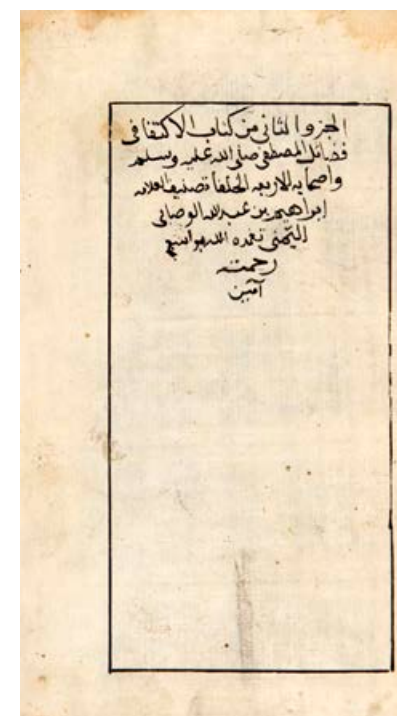 الجزو الثاني من كتاب الاكتفا في
فضائل المصطفى صلى الله عليه وسلم
واصحابه الاربعه الخلفاء تصنيف العلامه
إبراهيم بن عبد الله الوصابي
اليمني تغمده الله بواسع
رحمته
آمين